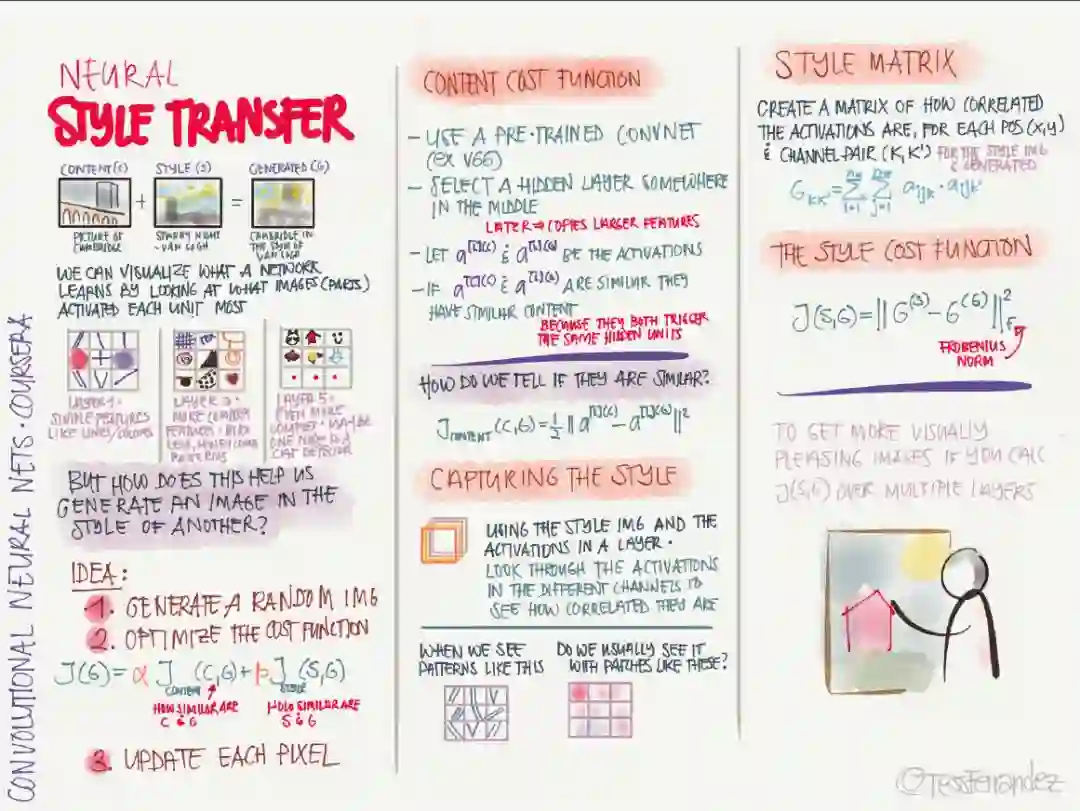 CONVOLUTIONAL NEURAL NETS · COURSERA
NEURAL
STYLE TRANSFER
CONTENT (C)
STYLE (S)
GENERATED (G)
+
=
PICTURE OF
CAMBRIDGE
STARRY NIGHT
- VAN GOGH
CAMBRIDGE IN
THE STYLE OF
VAN GOGH
WE CAN VISUALIZE WHAT A NETWORK
LEARNS BY LOOKING AT WHAT IMAGES (PARTS)
ACTIVATED EACH UNIT MOST
LAYER 1 -
SIMPLE FEATURES
LIKE LINES/COLORS
LAYER 3 -
MORE COMPLEX
FEATURES
PATTERNS
LAYER 5 -
EVEN MORE
COMPLEX - MAYBE
ONE NODE IS A
CAT DETECTOR
BUT HOW DOES THIS HELP US
GENERATE AN IMAGE IN THE
STYLE OF ANOTHER?
IDEA:
1. GENERATE A RANDOM IMG
2. OPTIMIZE THE COST FUNCTION
J(G) = α J CONTENT (C,G) + β J STYLE (S,G)
HOW SIMILAR ARE
C & G
HOW SIMILAR ARE
S & G
3. UPDATE EACH PIXEL
CONTENT COST FUNCTION
- USE A PRE-TRAINED CONVNET
(EX VGG)
- SELECT A HIDDEN LAYER SOMEWHERE
IN THE MIDDLE
LATER ⇒ COPIES LARGER FEATURES
- LET a^[l](C) & a^[l](G) BE THE ACTIVATIONS
- IF a^[l](C) & a^[l](G) ARE SIMILAR THEY
HAVE SIMILAR CONTENT
BECAUSE THEY BOTH TRIGGER
THE SAME HIDDEN UNITS
HOW DO WE TELL IF THEY ARE SIMILAR?
J_CONTENT (C,G) = ½ ‖a^[l](C) - a^[l](G)‖²
CAPTURING THE STYLE
USING THE STYLE IMG AND THE
ACTIVATIONS IN A LAYER.
LOOK THROUGH THE ACTIVATIONS
IN THE DIFFERENT CHANNELS TO
SEE HOW CORRELATED THEY ARE
WHEN WE SEE
PATTERNS LIKE THIS
DO WE USUALLY SEE IT
WITH PATCHES LIKE THESE?
STYLE MATRIX
CREATE A MATRIX OF HOW CORRELATED
THE ACTIVATIONS ARE, FOR EACH POS (X,Y)
& CHANNEL-PAIR (K,K') FOR THE STYLE IMG
& GENERATED
G_KK' = Σ Σ a_ijk · a_ijk'
THE STYLE COST FUNCTION
J(S,G) = ‖G^(S) - G^(G)‖²_F
FROBENIUS
NORM
TO GET MORE VISUALLY
PLEASING IMAGES IF YOU CALC
J(S,G) OVER MULTIPLE LAYERS
@TessFerrandez